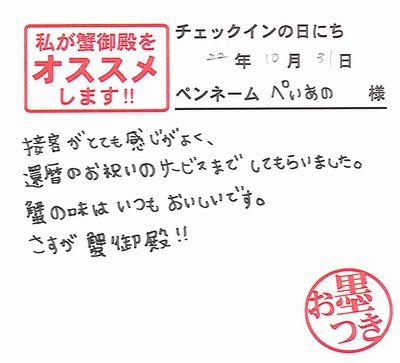 私が蟹御殿を
オススメ
します!!
チェックインの日にち
22年10月31日
ペンネーム ぺいあの 様
接客がとても感じがよく、
還暦のお祝いのサービスまでしてもらいました。
蟹の味はいつもおいしいです。
さすが蟹御殿!!
お墨つき